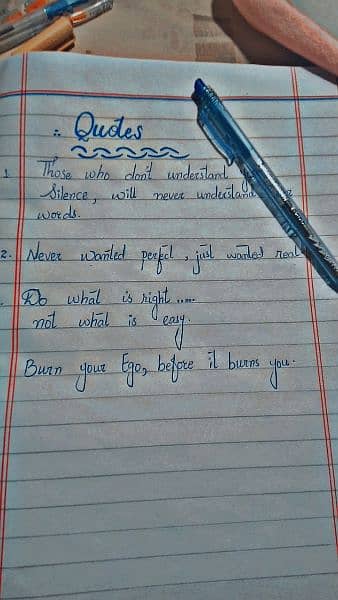 ∴ Quotes
1. Those who don't understand
Silence, will never understand
words.
2. Never wanted perfect, just wanted real
Do what is right.....
not what is easy.
Burn your Ego, before it burns you.